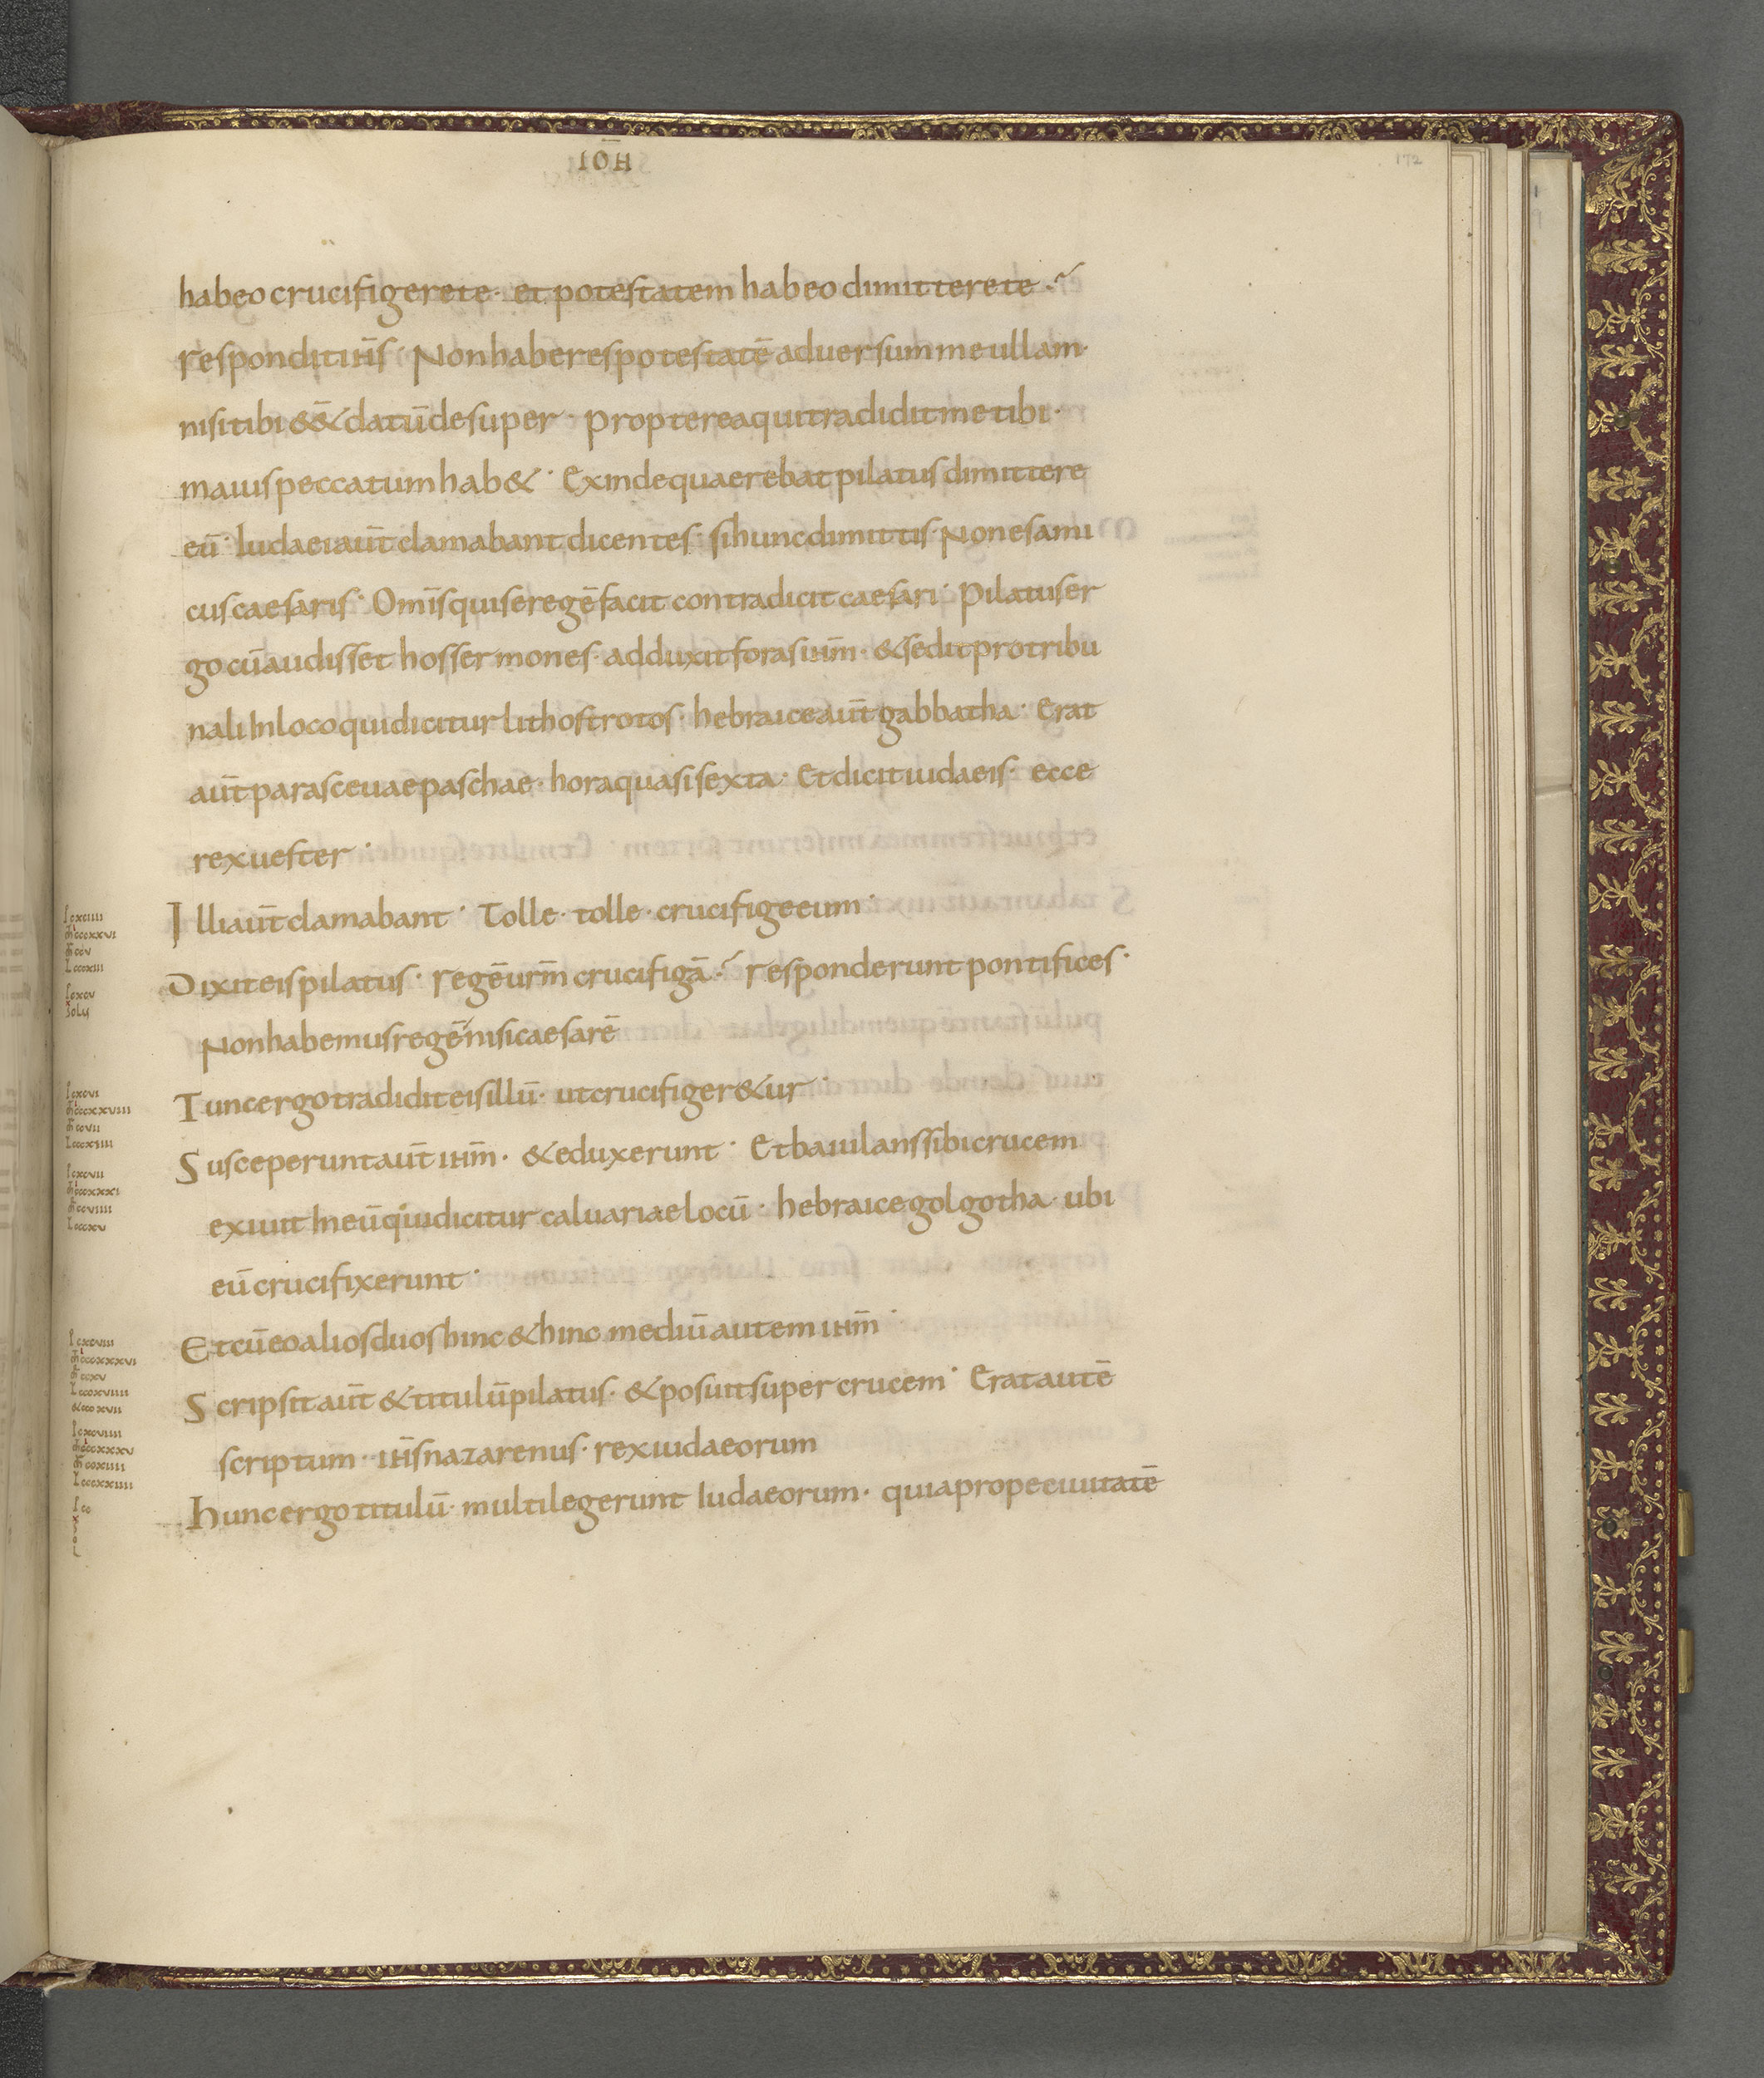 IOH̅
172
habeo crucifigere te · et potestatem habeo dimittere te ·
respondit ih̅s · Non haberes potestatē aduersum me ullam ·
nisi tibi &&̅ datū desuper · propterea qui tradidit me tibi ·
maius peccatum hab& · Exinde quaerebat pilatus dimittere
eū · Iudaei aūt clamabant dicentes · si hunc dimittis · Non es ami
cus caesaris · Omīs qui se regē facit contradicit caesari · Pilatus er
go cū audisset hos sermones · adduxit foras ihm̅ · & sedit pro tribu
nali In loco qui dicitur lithostrotos · hebraice aūt gabbatha · Erat
aūt parasceuae paschae · hora quasi sexta · Et dicit iudaeis · ecce
rex uester ·
Illi aūt clamabant · Tolle · tolle · crucifige eum ·
Dixit eis pilatus · regē urm̅ crucifigā · responderunt pontifices ·
Non habemus regē nisi caesarē
Tunc ergo tradidit eis illū · ut crucifiger&ur ·
Susceperunt aūt ihm̅ · & eduxerunt · Et baiulans sibi crucem
exiuit In eū qui dicitur caluariae locū · hebraice golgotha · ubi
eū crucifixerunt ·
Et cū eo alios duos hinc & hinc · mediū autem ihm̅ ·
Scripsit aūt & titulū pilatus · & posuit super crucem · Erat autē
scriptum · ih̅s nazarenus · rex iudaeorum
Hunc ergo titulū · multi legerunt Iudaeorum · quia prope ciuitatē